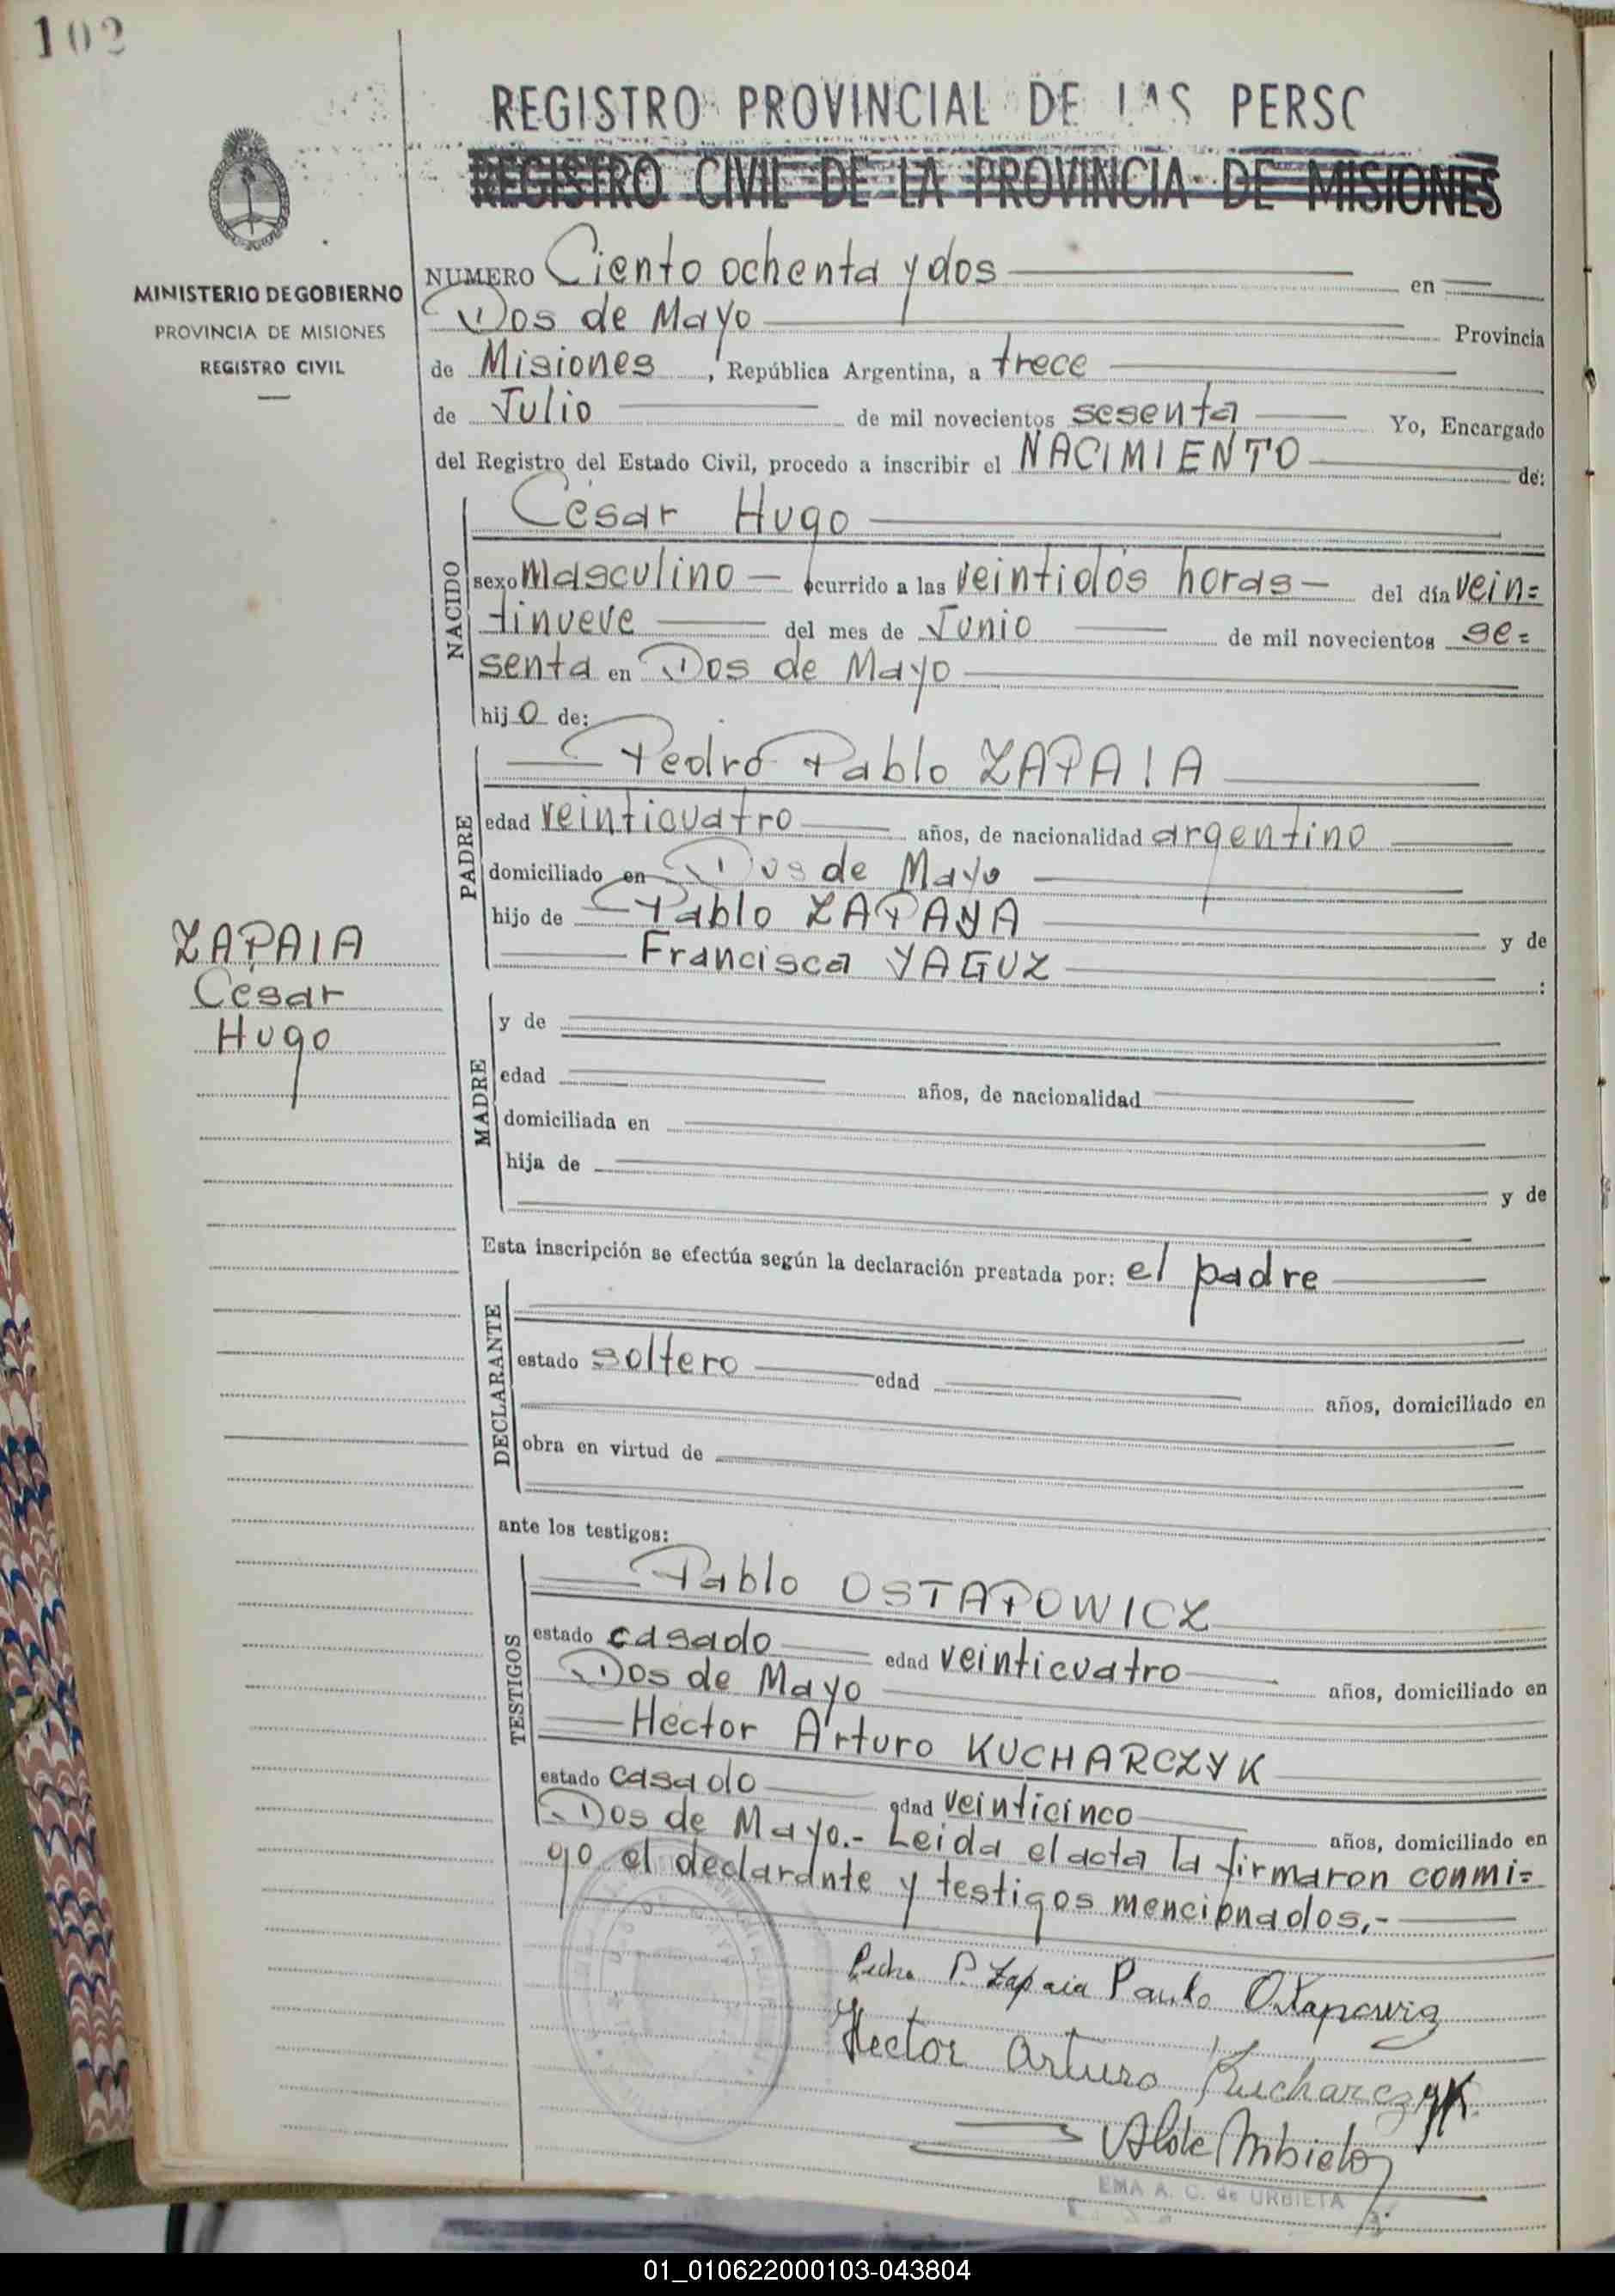 102
REGISTRO PROVINCIAL DE LAS PERSO
REGISTRO CIVIL DE LA PROVINCIA DE MISIONES
MINISTERIO DE GOBIERNO
PROVINCIA DE MISIONES
REGISTRO CIVIL
NUMERO Ciento ochenta y dos en
Dos de Mayo Provincia
de Misiones, República Argentina, a trece
de Julio de mil novecientos sesenta Yo, Encargado
del Registro del Estado Civil, procedo a inscribir el NACIMIENTO de:
NACIDO
César Hugo
sexo masculino ocurrido a las veintidós horas del día vein=
tinueve del mes de Junio de mil novecientos se=
senta en Dos de Mayo
hijo de:
PADRE
Pedro Pablo ZAPAIA
edad veinticuatro años, de nacionalidad argentino
domiciliado en Dos de Mayo
hijo de Pablo ZAPAYA y de
Francisca YAGUZ :
ZAPAIA
César
Hugo
MADRE
y de
edad años, de nacionalidad
domiciliada en
hija de
y de
Esta inscripción se efectúa según la declaración prestada por: el padre
DECLARANTE
estado soltero edad años, domiciliado en
obra en virtud de
ante los testigos:
TESTIGOS
Pablo OSTAPOWICZ
estado casado edad veinticuatro años, domiciliado en
Dos de Mayo
Héctor Arturo KUCHARCZYK
estado casado edad veinticinco años, domiciliado en
Dos de Mayo.- Leida el acta la firmaron conmi=
go el declarante y testigos mencionados.-
Pedro P. Zapaia Paulo Ostapowicz
Hector Arturo Kucharczyk
EMA A. C. de URBIETA
01_010622000103-043804